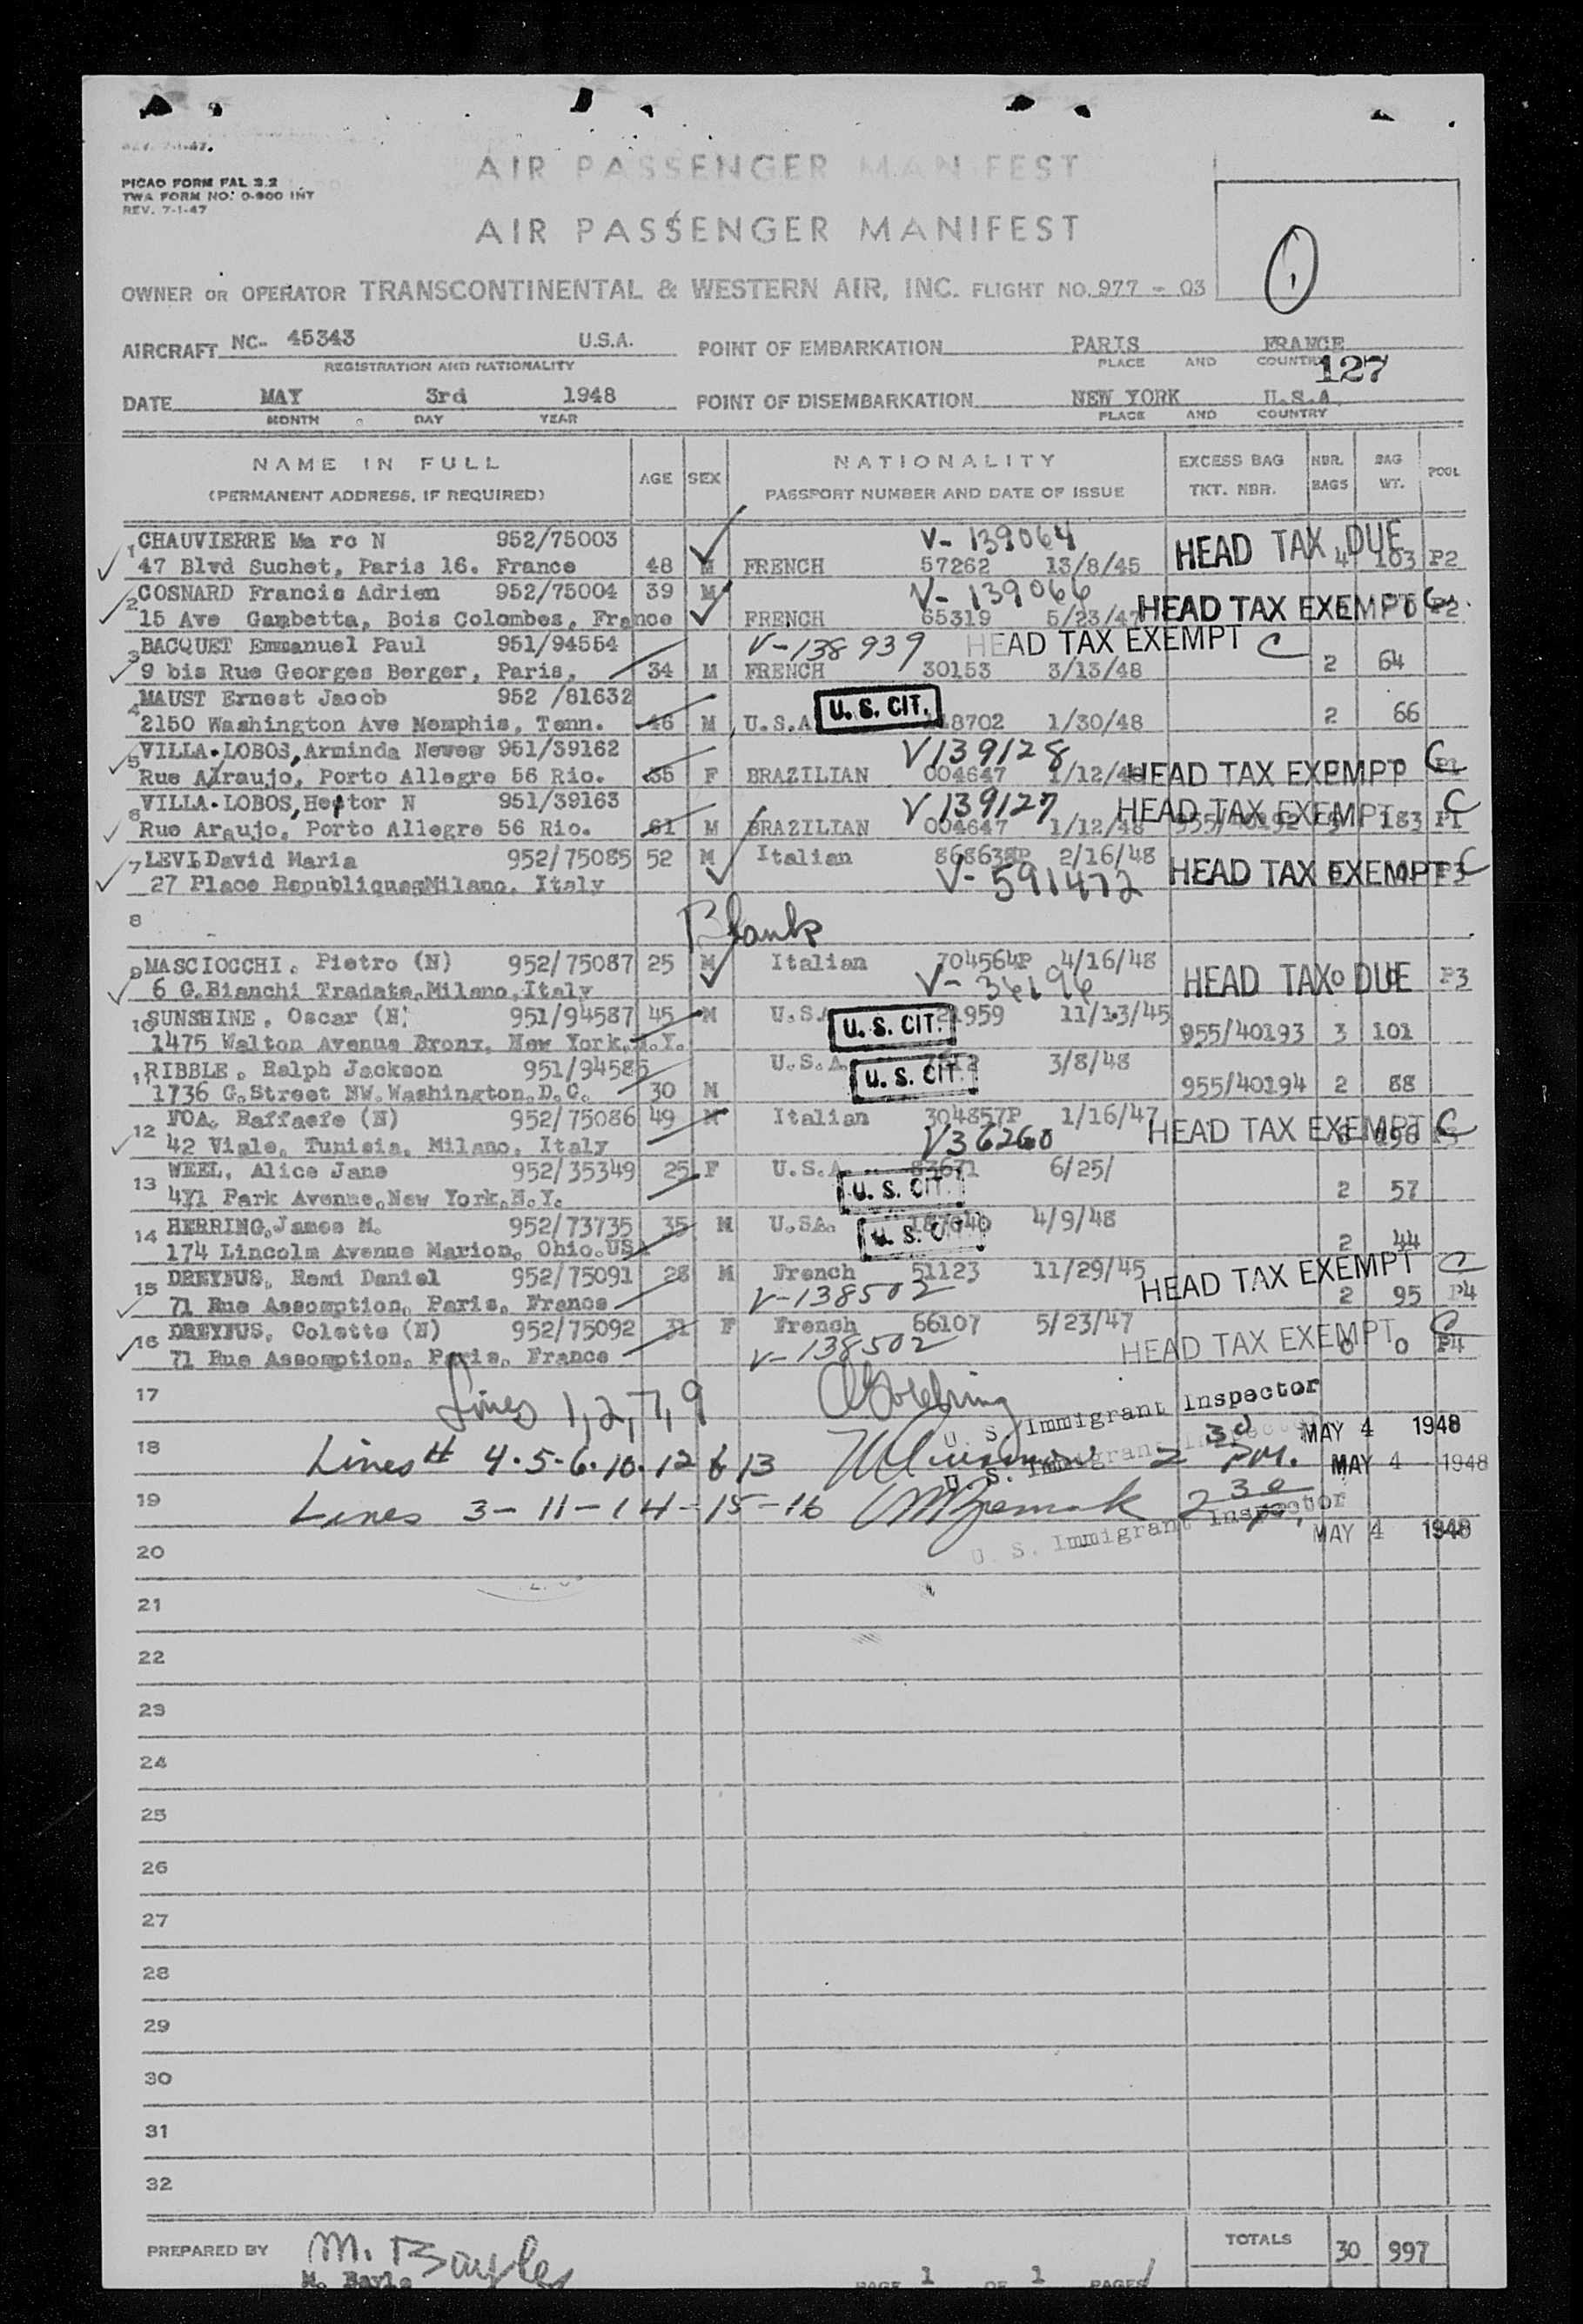 REV. 7-1-47.
AIR PASSENGER MANIFEST
PICAO FORM FAL 2.2
TWA FORM NO. 0-800 INT
REV. 7-1-47
AIR PASSENGER MANIFEST
1
OWNER OR OPERATOR TRANSCONTINENTAL & WESTERN AIR, INC. FLIGHT NO. 977 - 03
AIRCRAFT NC- 45343 U.S.A. POINT OF EMBARKATION PARIS FRANCE
REGISTRATION AND NATIONALITY PLACE AND COUNTRY
127
DATE MAY 3rd 1948 POINT OF DISEMBARKATION NEW YORK U.S.A.
MONTH DAY YEAR PLACE AND COUNTRY
NAME IN FULL AGE SEX NATIONALITY EXCESS BAG NBR. BAG POOL
(PERMANENT ADDRESS, IF REQUIRED) PASSPORT NUMBER AND DATE OF ISSUE TKT. NBR. BAGS WT.
1 CHAUVIERRE Ma rc N 952/75003 V- 139064 HEAD TAX DUE
47 Blvd Suchet, Paris 16. France 48 M FRENCH 57262 13/8/45 4 163 P2
2 COSNARD Francis Adrien 952/75004 39 M V- 139066
15 Ave Gambetta, Bois Colombes, France FRENCH 65319 5/23/47 HEAD TAX EXEMPT C P2
3 BACQUET Emmanuel Paul 951/94554 V-138939 HEAD TAX EXEMPT C
9 bis Rue Georges Berger, Paris. 34 M FRENCH 30153 3/13/48 2 64
4 MAUST Ernest Jacob 952 /81632 U. S. CIT.
2150 Washington Ave Memphis, Tenn. 46 M U.S.A 48702 1/30/48 2 66
5 VILLA-LOBOS, Arminda Neves 951/39162 V139128
Rue Araujo, Porto Allegre 56 Rio. 35 F BRAZILIAN 004647 1/12/48 HEAD TAX EXEMPT C P1
6 VILLA-LOBOS, Hector N 951/39163 V139127 HEAD TAX EXEMPT C
Rue Araujo, Porto Allegre 56 Rio. 61 M BRAZILIAN 004647 1/12/48 955/40192 183 P1
7 LEVI David Maria 952/75085 52 M Italian 868638P 2/16/48
27 Place Republique Milano. Italy V- 591472 HEAD TAX EXEMPT C P3
8 Blank
9 MASCIOCCHI. Pietro (N) 952/75087 25 M Italian 704564P 4/16/48
6 G.Bianchi Tradate,Milano,Italy V- 36196 HEAD TAX DUE P3
10 SUNSHINE. Oscar (N) 951/94587 45 M U.S.A U. S. CIT. 21959 11/13/45
1475 Walton Avenue Bronx, New York,N.Y. 955/40193 3 101
11 RIBBLE. Ralph Jackson 951/94585 U.S.A. U. S. CIT. 3/8/48
1736 G.Street NW.Washington,D.C. 30 M 955/40194 2 88
12 FOA. Raffaele (N) 952/75086 49 M Italian 304857P 1/16/47 HEAD TAX EXEMPT C
42 Viale. Tunisia. Milano. Italy V36260
13 WEEL, Alice Jane 952/35349 25 F U.S.A. 83671 6/25/
471 Park Avenue,New York,N.Y. U. S. CIT. 2 57
14 HERRING,James M. 952/73735 35 M U.SA. 4/9/48
174 Lincoln Avenue Marion, Ohio.USA U. S. CIT. 2 44
15 DREYFUS, Remi Daniel 952/75091 28 M French 51123 11/29/45 HEAD TAX EXEMPT C
71 Rue Assomption, Paris, France V-138502 2 95 P4
16 DREYFUS, Colette (N) 952/75092 31 F French 66107 5/23/47 HEAD TAX EXEMPT C
71 Rue Assomption, Paris, France V-138502 0 0 P4
17 Lines 1, 2, 7, 9 U. S. Immigrant Inspector
18 Lines # 4-5-6-10-12 & 13 2 30 PM. MAY 4 1948
U. S. Immigrant Inspector MAY 4 1948
19 Lines 3-11-14-15-16 2 30
U. S. Immigrant Inspector MAY 4 1948
20
21
22
23
24
25
26
27
28
29
30
31
32
PREPARED BY M. Bayle TOTALS 30 997
M. Bayle PAGE 1 OF 1 PAGES